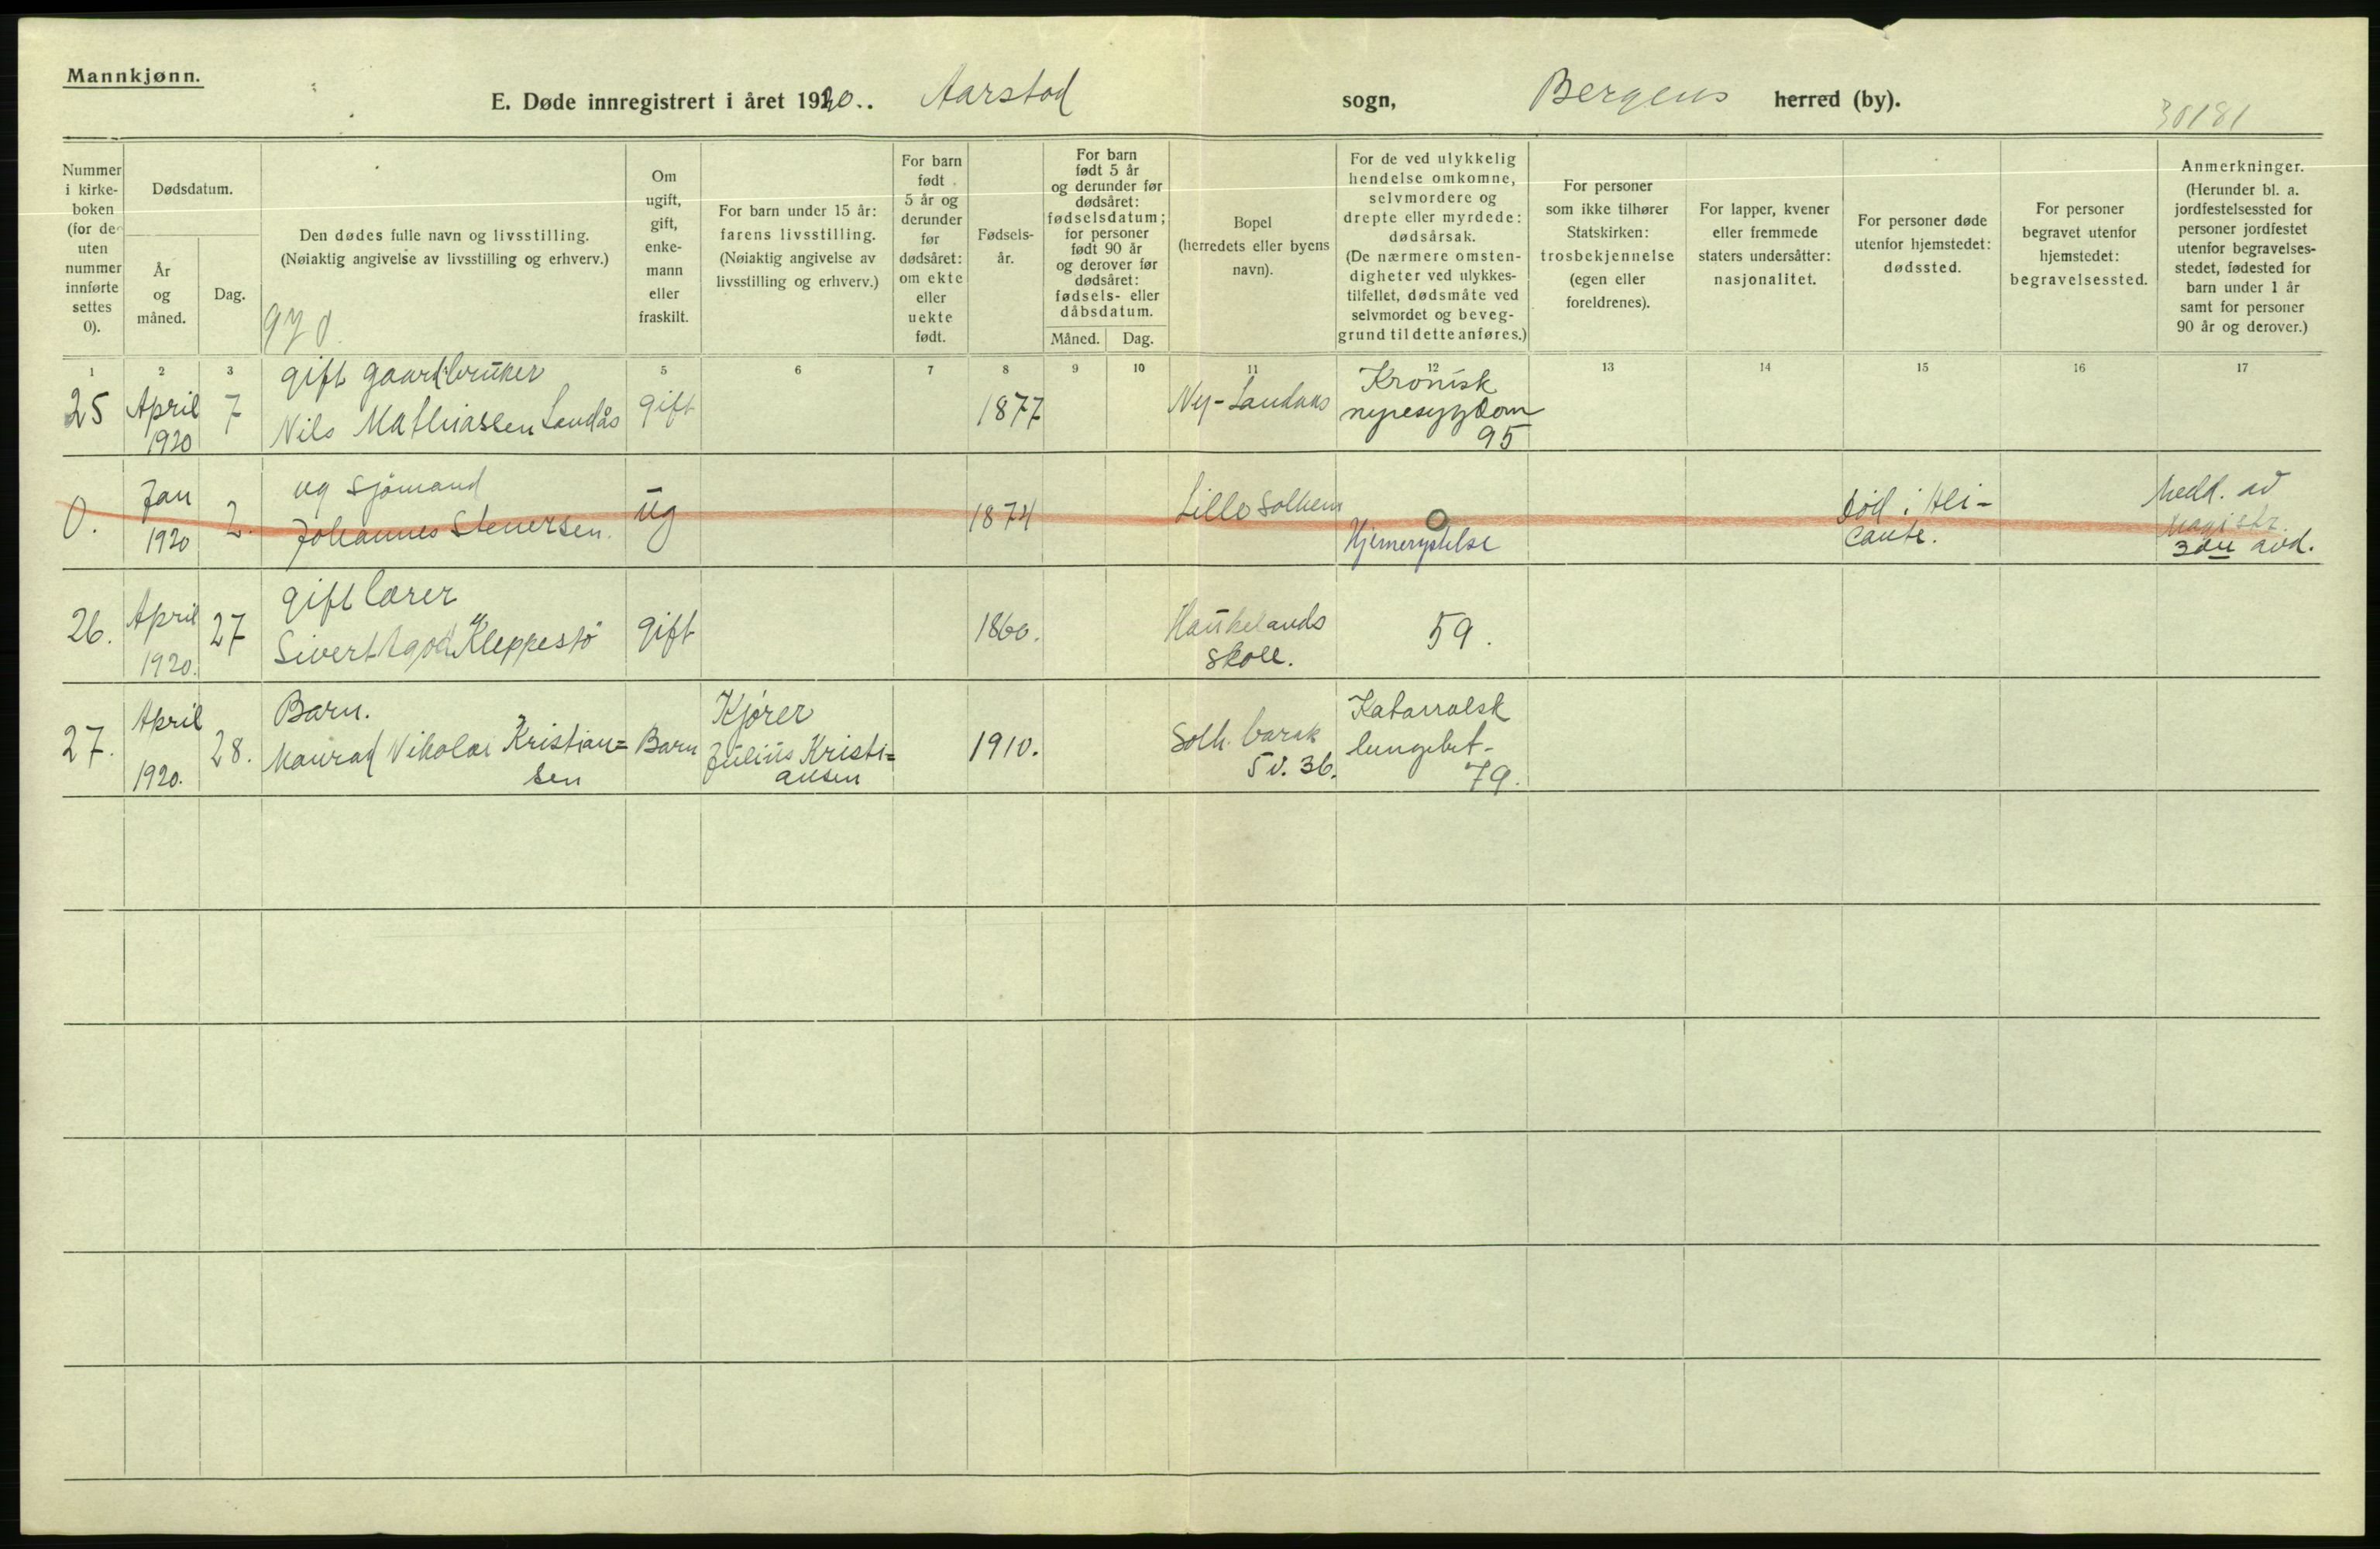 Mannkjønn.
E. Døde innregistrert i året 1920.. Aarstad sogn, Bergens herred (by).
30181
Nummer i kirke-boken (for de uten nummer innførte settes 0).
Dødsdatum.
År og måned.
Dag.
Den dødes fulle navn og livsstilling.
(Nøiaktig angivelse av livsstilling og erhverv.)
970
Om ugift, gift, enke-mann eller fraskilt.
For barn under 15 år: farens livsstilling.
(Nøiaktig angivelse av livsstilling og erhverv.)
For barn født 5 år og derunder før dødsåret: om ekte eller uekte født.
Fødsels-år.
For barn født 5 år og derunder før dødsåret: fødselsdatum; for personer født 90 år og derover før dødsåret: fødsels- eller dåbsdatum.
Måned.
Dag.
Bopel
(herredets eller byens navn).
For de ved ulykkelig hendelse omkomne, selvmordere og drepte eller myrdede: dødsårsak.
(De nærmere omsten-digheter ved ulykkes-tilfellet, dødsmåte ved selvmordet og beveg-grund til dette anføres.)
For personer som ikke tilhører Statskirken: trosbekjennelse
(egen eller foreldrenes).
For lapper, kvener eller fremmede staters undersåtter: nasjonalitet.
For personer døde utenfor hjemstedet: dødssted.
For personer begravet utenfor hjemstedet: begravelsessted.
Anmerkninger.
(Herunder bl. a. jordfestelsessted for personer jordfestet utenfor begravelses-stedet, fødested for barn under 1 år samt for personer 90 år og derover.)
1 2 3 5 6 7 8 9 10 11 12 13 14 15 16 17
gift gaardbruker
25 April 1920 7 Nils Mathiassen Landås gift 1877 Ny-Landaas Kronisk nyresygdom 95
ug sjömand
0. Jan 1920 2. Johannes Stenersen. ug 1874 Lille Solheim Hjernerystelse död i Ali-cante. Medd. av Magistr. 3die avd.
gift lærer
26. April 1920. 27 Sivert Kleppestö gift 1860. Haukelands skole. 59.
Barn.
27. April 1920. 28. Konrad Nikolai Kristian=sen Barn Kjörer Julius Kristi=ansen 1910. Solh. barak 5 v. 36. Katarralsk lungebet- 79.